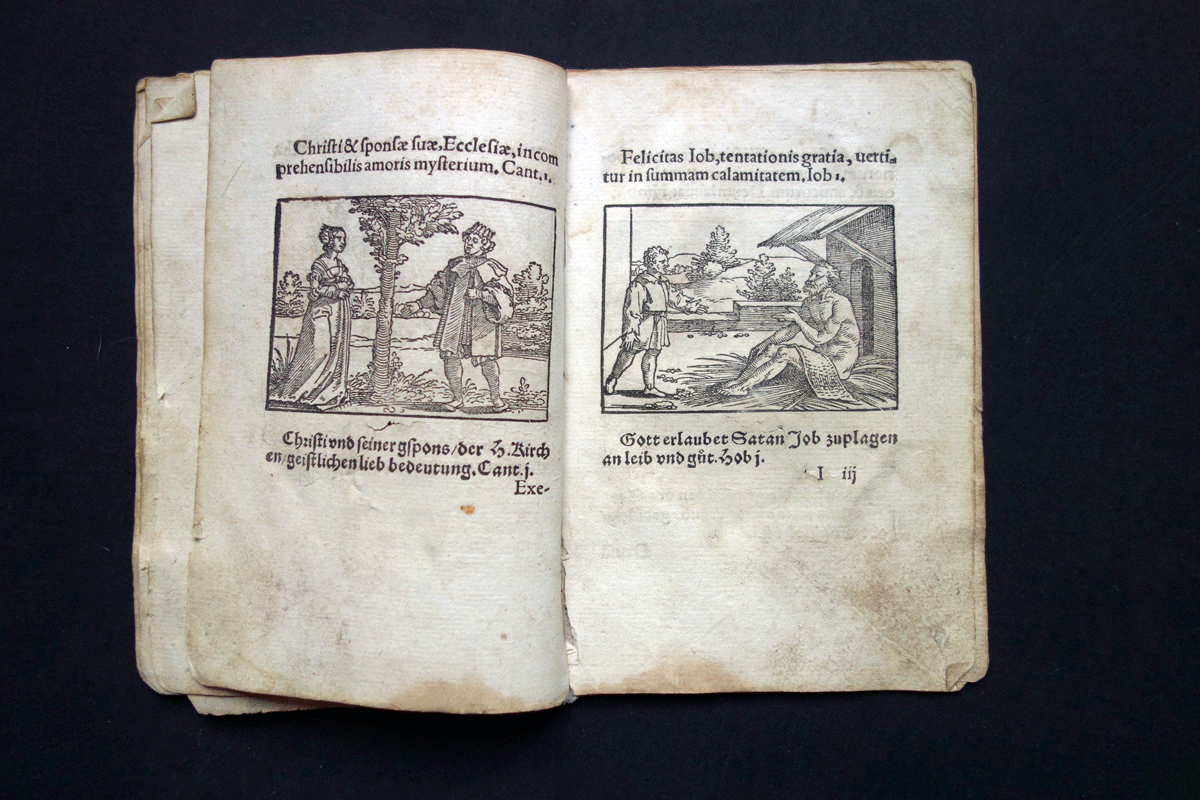 Christi & sponsæ suæ, Ecclesiæ, incom
prehensibilis amoris mysterium. Cant. 1.
Christi vnd seiner gspons/der H. Kirch
en/geistlichen lieb bedeutung. Cant. j.
Exe-
Felicitas Iob, tentationis gratia, uerti-
tur in summam calamitatem. Iob 1.
Gott erlaubet Satan Job zuplagen
an leib vnd gůt. Hob j.
I iij